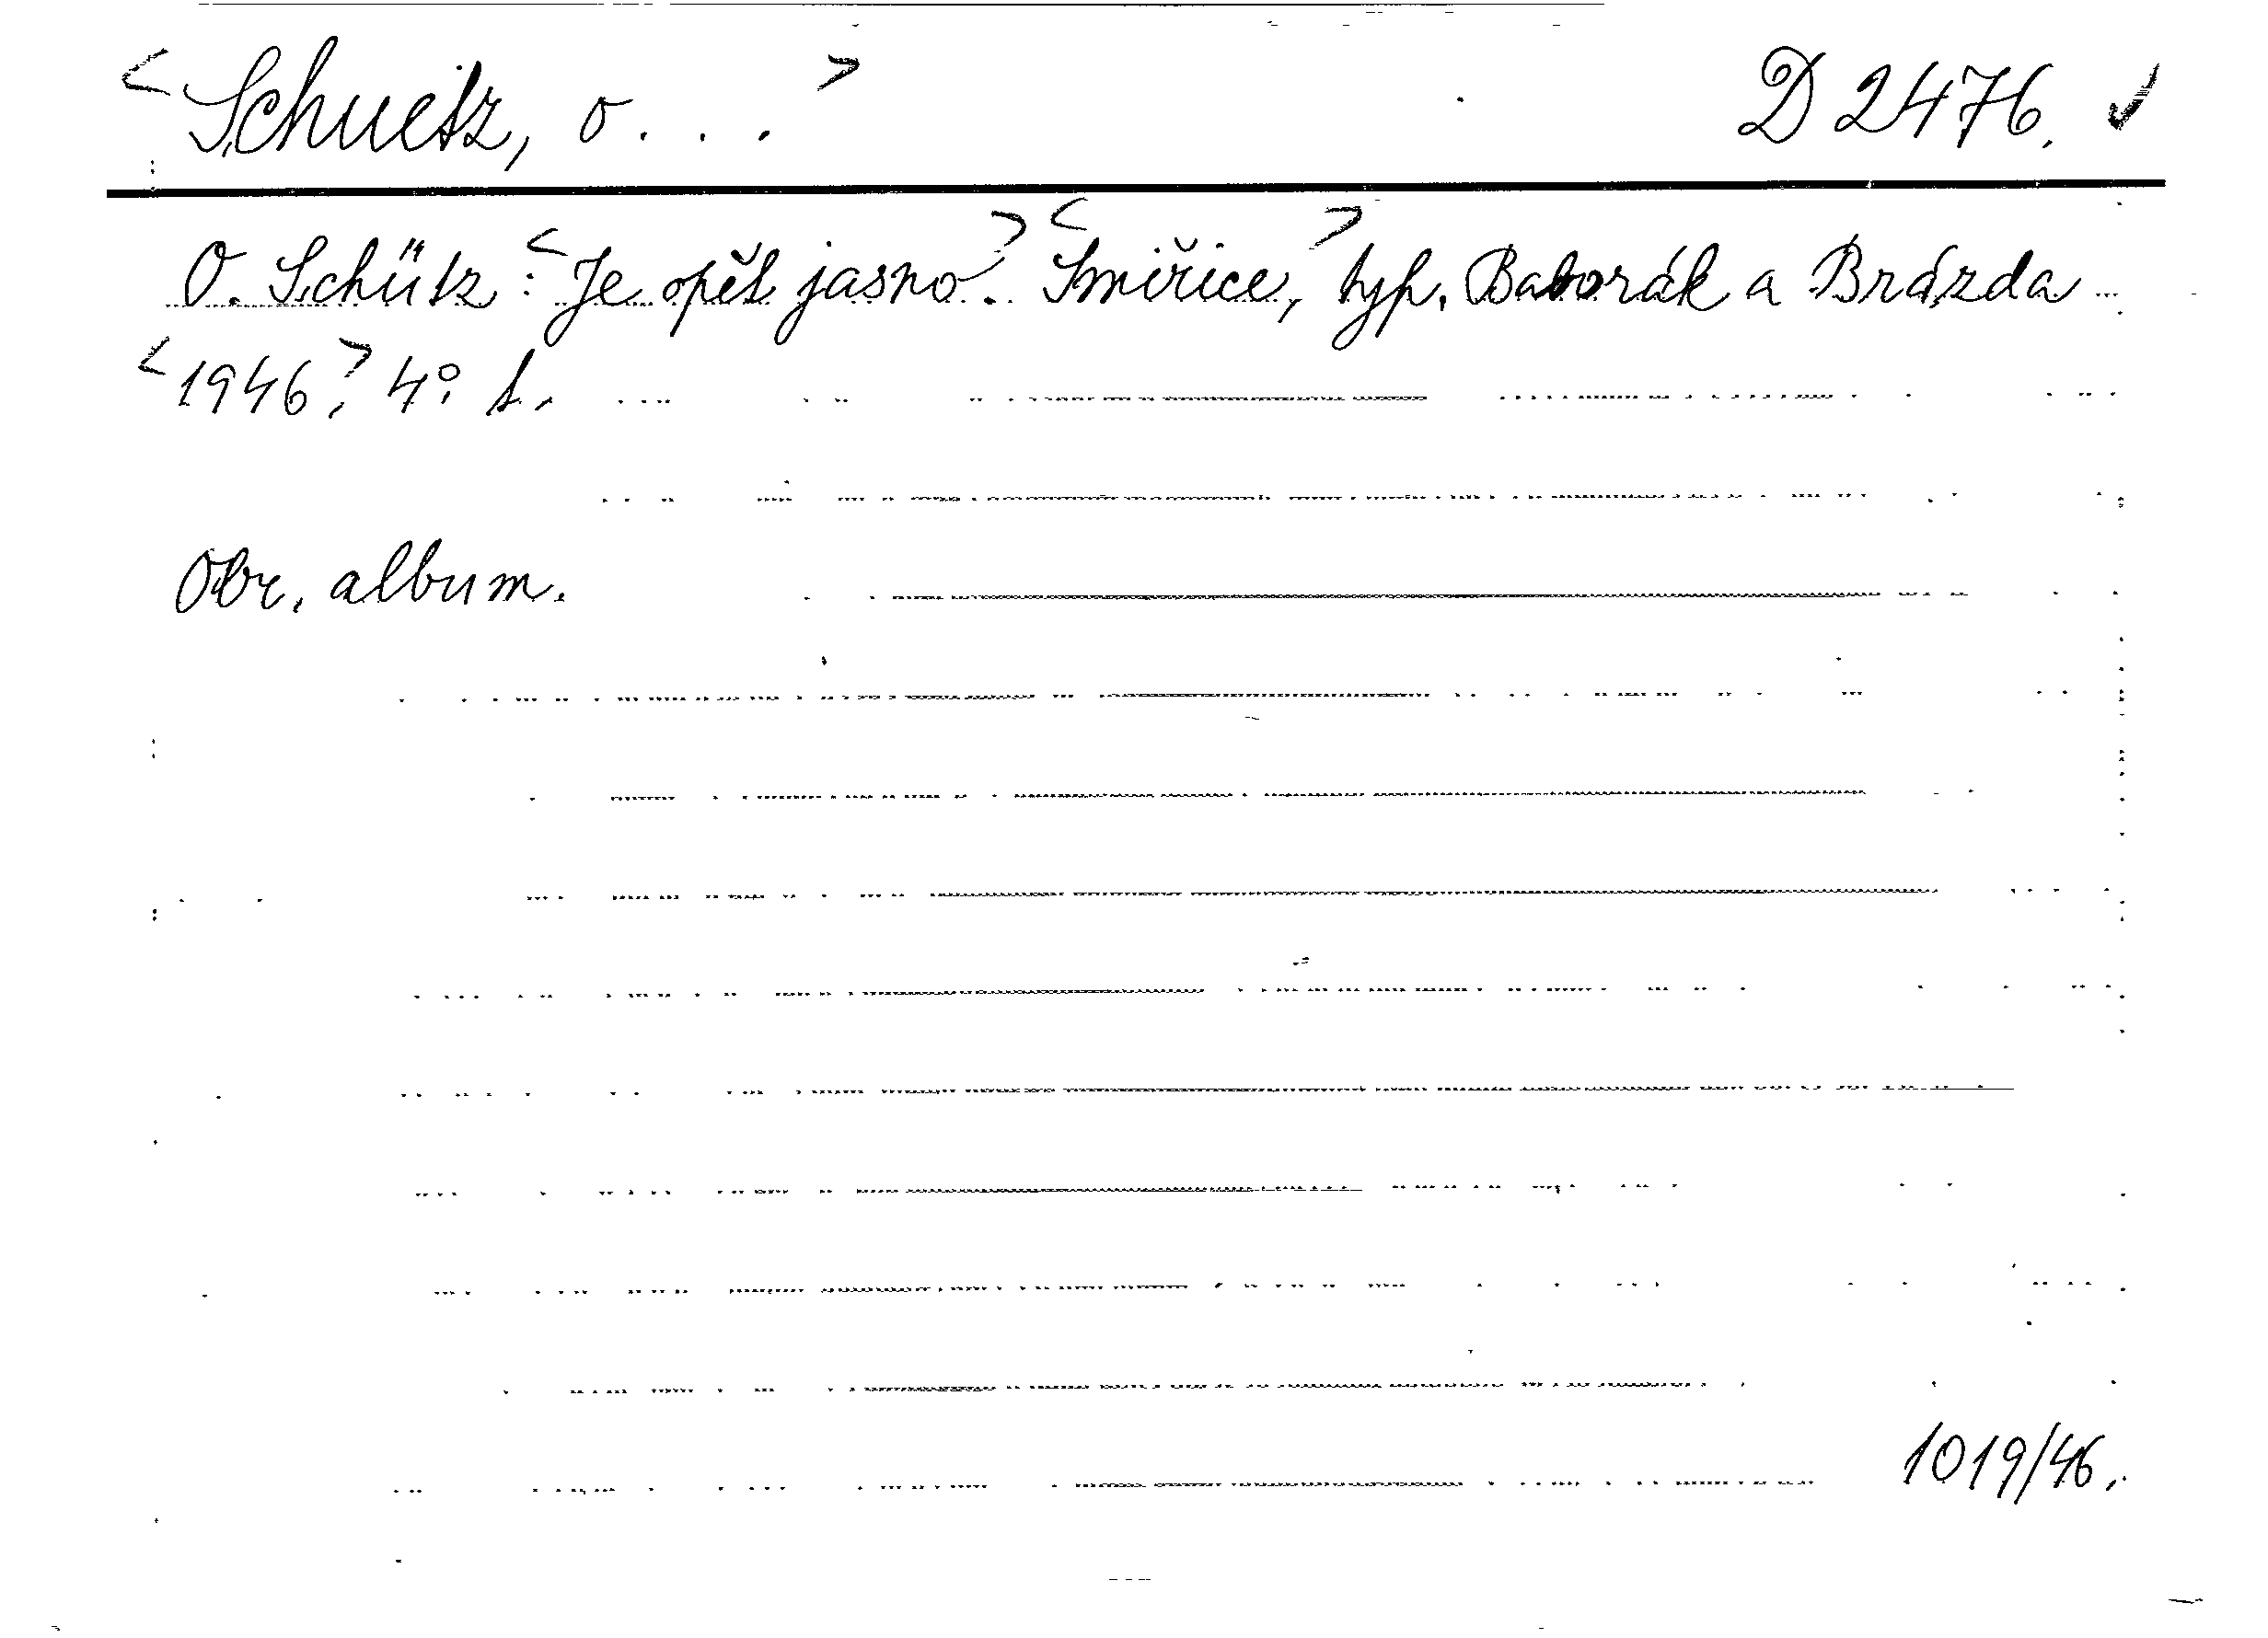 <Schuetz, O. . .> D 2476. ✓
O. Schütz: <Je opět jasno.> <Smiřice,> typ. Baborák a Brázda
<1946>. 4°. s.
Obr. album.
1019/46.